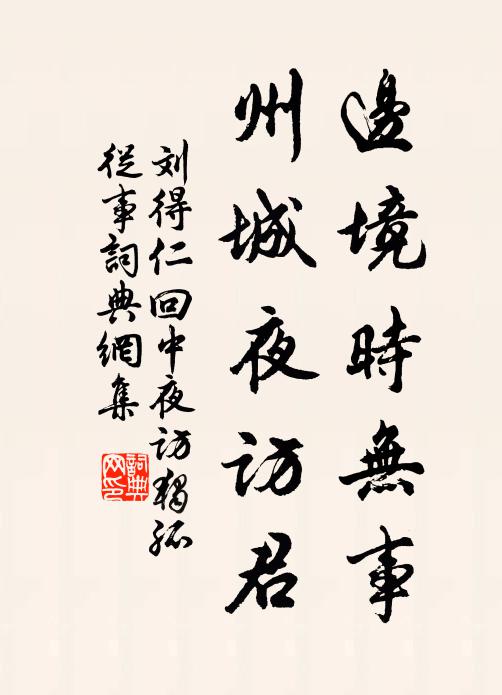 邊境時無事
州城夜訪君
刘得仁回中夜访獨孤
從事詞典網集
詞典
网印